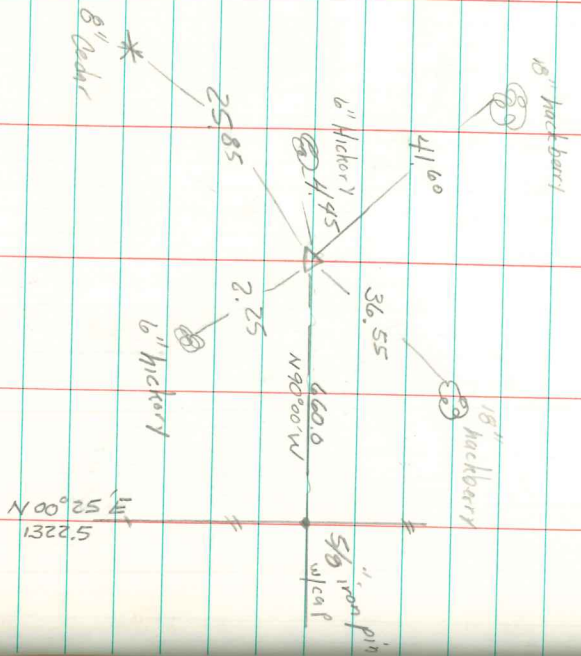 18" hackberry
8" Cedar
41.60
6" Hickory
25.85
4.45
36.55
2.25
6" hickory
18"
hackberry
660.0
N90°00'W
N 00° 25' E
1322.5
5/8" iron pin
w/cap